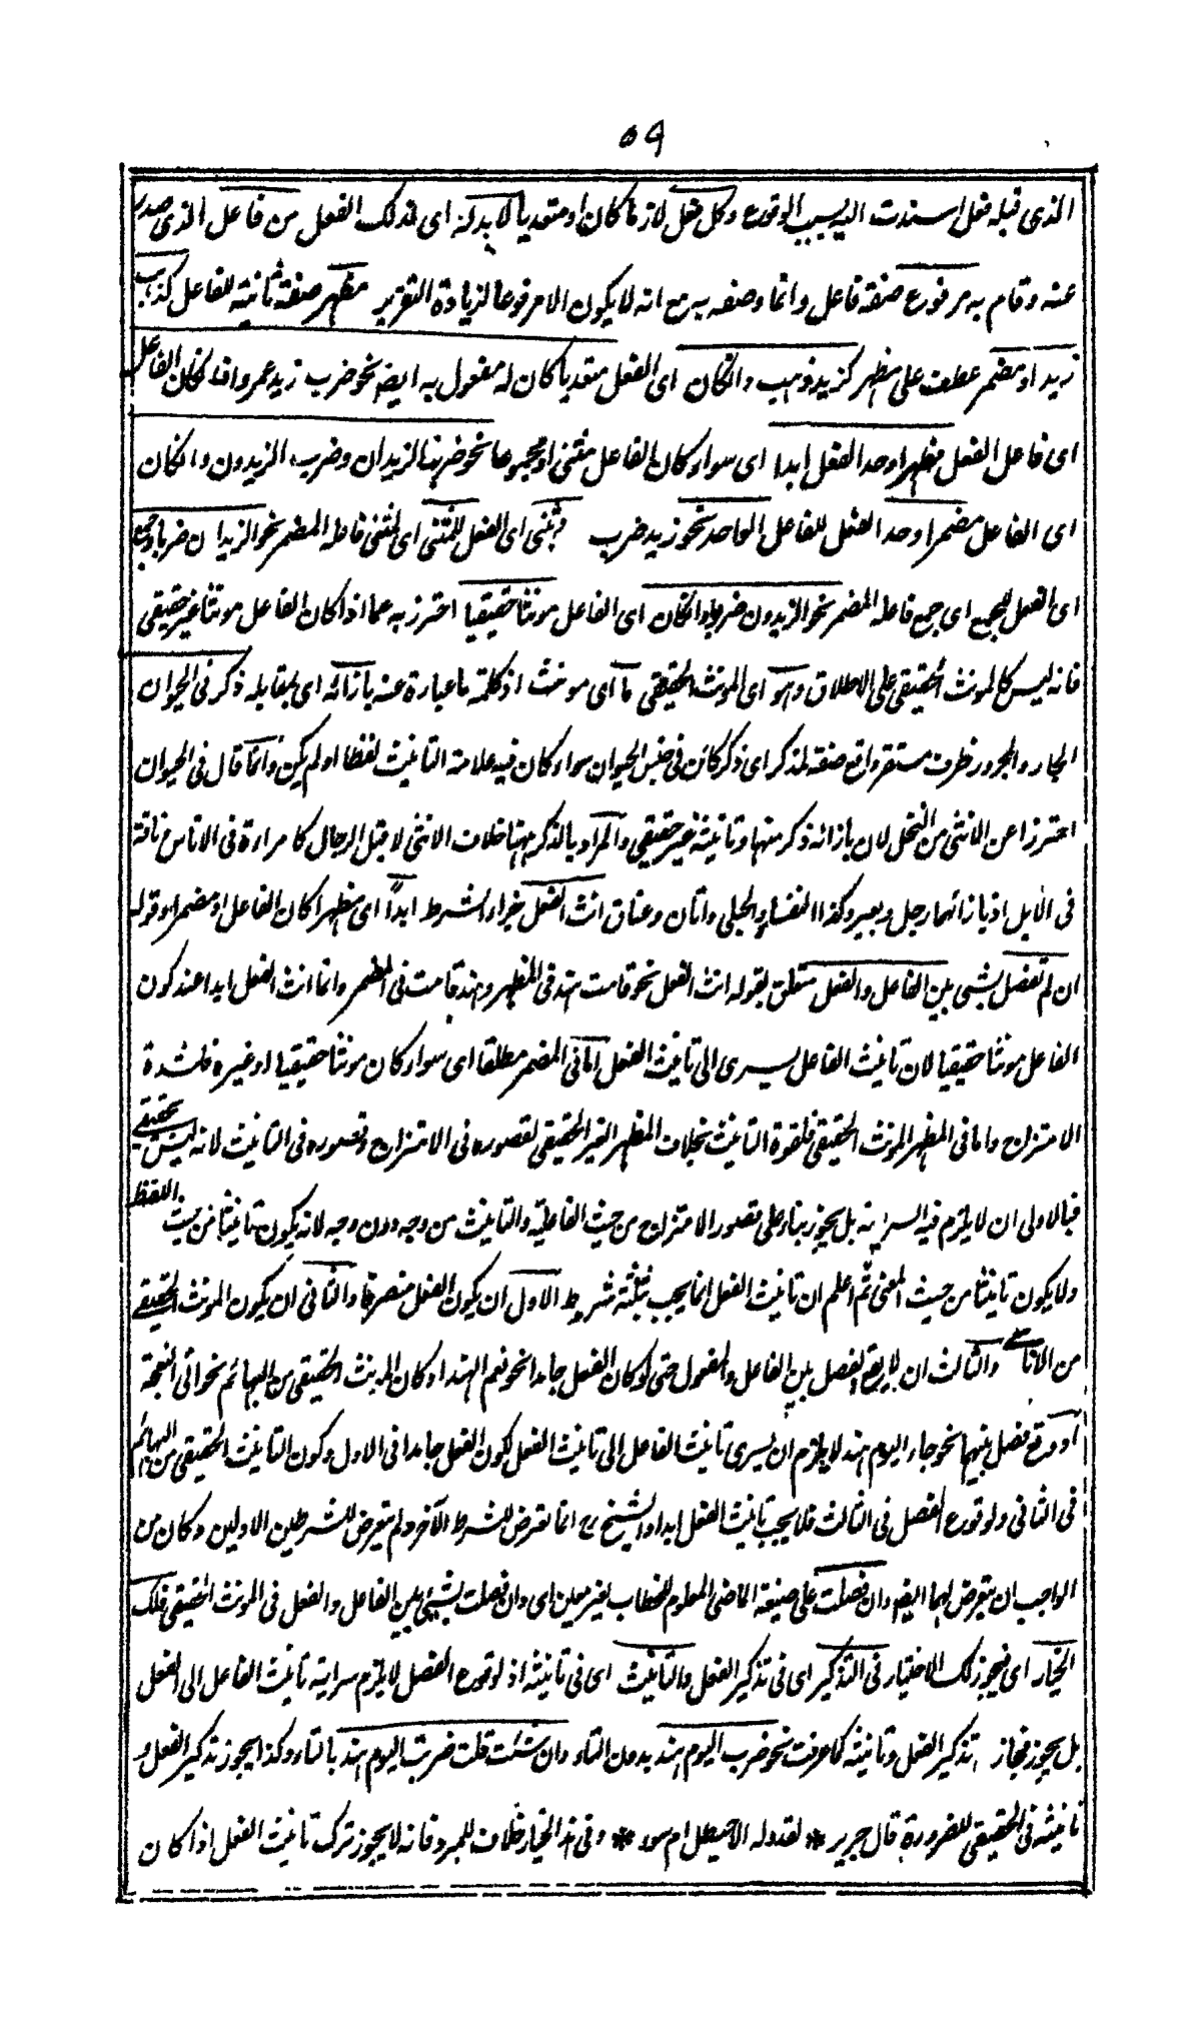 ٥٩
الذى قبله فعل اسندت اليه بسبب الوقوع وكل فعل لازما كان او متعديا لا بد له اى لذلك الفعل من فاعل الذى صدر
عنه وقام به مرفوع صفة فاعل وانما وصفه به مع انه لا يكون الا مرفوعا لزيادة التقرير مظهر صفة ثانية لفاعل كذهب
زيد او مضمر عطف على مظهر كزيد ذهب وان كان اى الفعل متعديا كان له مفعول به ايضا نحو ضرب زيد عمروا فان كان الفاعل
اى فاعل الفعل مظهرا وحد الفعل ابدا اى سواء كان الفاعل مثنى او مجموعا نحو ضرب الزيدان وضرب الزيدون وان كان
اى الفاعل مضمرا وحد الفعل للفاعل الواحد نحو زيد ضرب وثنى اى الفعل للمثنى اى لمثنى فاعله المضمر نحو الزيدان ضربا وجمع
اى الفعل للجمع اى جمع فاعله المضمر نحو الزيدون ضربوا وان كان اى الفاعل مونثا حقيقيا احترز به عما اذا كان الفاعل مونثا غير حقيقى
فانه ليس كالمونث الحقيقى على الاطلاق وهو اى المونث الحقيقى ما اى مونث اذ كلمة ما عبارة عنه بازائه اى بمقابله ذكر فى الحيوان
الجار والمجرور ظرف مستقر واقع صفة لذكر اى ذكر كائن فى جنس الحيوان سواء كان فيه علامة التانيث لفظا او لم يكن وانما قال فى الحيوان
احترزا عن الانثى من النخل لان بازائه ذكر منها وتانيثه غير حقيقى والمراد بالذكر ههنا خلاف الانثى لا قبل الرجال كامراءة فى الاناس وناقة
فى الابل اذ بازائهما رجل وبعير وكذا النفساء والحبلى واتان وعناق انث الفعل جزاء الشرط ابدا اى مظهرا كان الفاعل او مضمرا وقوله
ان لم تفصل بشى بين الفاعل والفعل متعلق بقوله انث الفعل نحو قامت هند فى المظهر وهند قامت فى المضمر وانما انث الفعل ابدا عند كون
الفاعل مونثا حقيقيا لان تانيث الفاعل يسرى الى تانيث الفعل اما فى المضمر مطلقا اى سواء كان مونثا حقيقيا او غيره فلشدة
الامتزاج واما فى المظهر المونث الحقيقى فلقوة التانيث بخلاف المظهر الغير الحقيقى لقصوره فى الامتزاج وقصوره فى التانيث لانه ليس بحقيقى
فبالاولى ان لا يلزم فيه السراية بل يجوز بناء على قصور الامتزاج من حيث الفاعلية والتانيث من وجه دون وجه لانه يكون تانيثا من حيث اللفظ
ولا يكون تانيثا من حيث المعنى ثم اعلم ان تانيث الفعل انما يجب بثلثة شروط الاول ان يكون الفعل منصرفا والثانى ان يكون المونث الحقيقى
من الاناسى والثالث ان لا يقع الفصل بين الفاعل والمفعول حتى لو كان الفعل جامدا نحو نعم الهند او كان المونث الحقيقى من البهائم نحو اتى النعجة
او وقع فصل بينهما نحو جاء اليوم هند لا يلزم ان يسرى تانيث الفاعل الى تانيث الفعل لكون الفعل جامدا فى الاول وكون التانيث الحقيقى من البهائم
فى الثانى ولوقوع الفصل فى الثالث فلا يجب تانيث الفعل ابدا والشيخ رح انما تعرض للشرط الآخر ولم يتعرض للشرطين الاولين وكان من
الواجب ان يتعرض لهما ايضا وان فصلت على صيغة الماضى المعلوم للخطاب لغير معين اى وان فصلت بشيئ بين الفاعل والفعل فى المونث الحقيقى فلك
الخيار اى فيجوز لك الاختيار فى التذكير اى فى تذكير الفعل والتانيث اى فى تانيثه اذ لوقوع الفصل لا يلزم سراية تانيث الفاعل الى الفعل
بل يجوز فجاز تذكير الفعل وتانيثه كما عرفت نحو ضرب اليوم هند بدون التاء وان شئت قلت ضربت اليوم هند بالتاء وكذا يجوز تذكير الفعل و
تانيثه فى الحقيقى للضرورة قال جرير * لقد وله الاخيطل ام سوء * وفى هذا الخيار خلاف للمبرد فانه لا يجوز ترك تانيث الفعل اذا كان